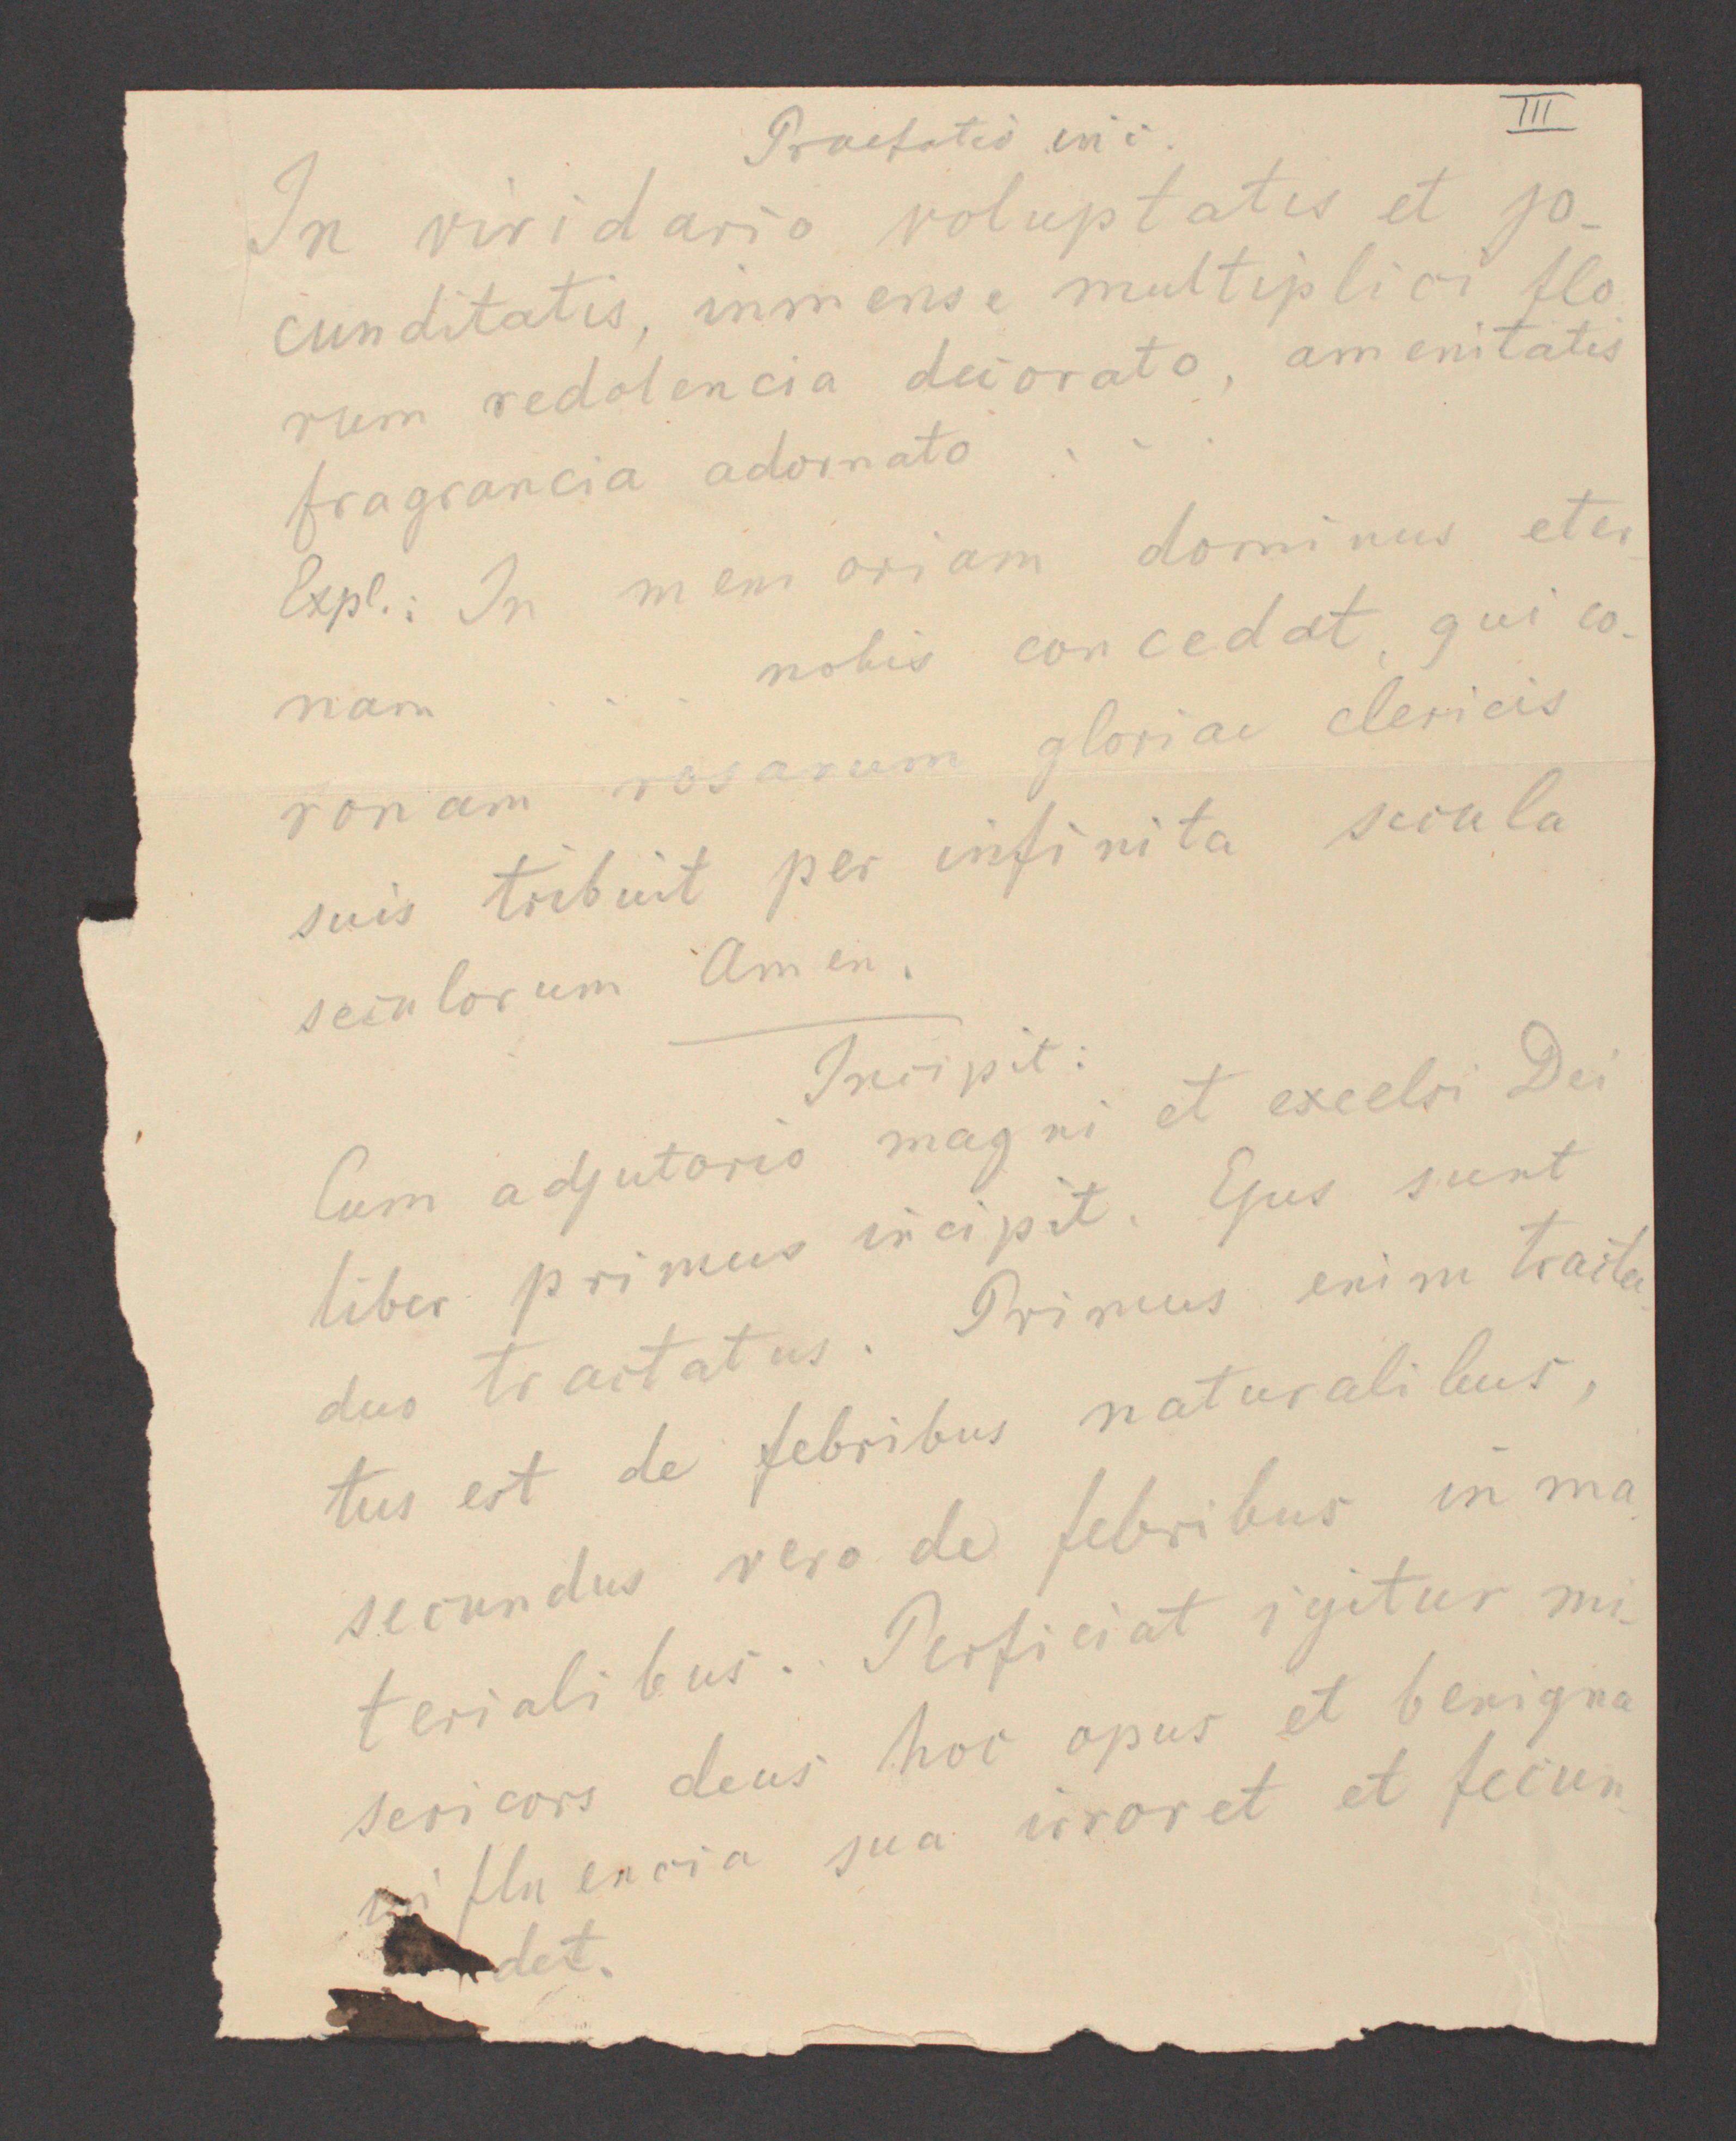 III
Praefatio inc.
In viridario voluptatis et jo-
cunditatis, inmense multiplici flo
rum redolencia decorato, amenitatis
fragrancia adornato . . .
Expl.: In memoriam dominus eter-
nam . . . nobis concedat, qui co-
ronam rosarum gloriae clericis
suis tribuit per infinita secula
seculorum Amen.
Incipit:
Cum adjutorio magni et excelsi Dei
liber primus incipit. Ejus sunt
duo tractatus. Primus enim tracta-
tus est de febribus naturalibus,
secundus vero de febribus in ma
terialibus. Perficiat igitur mi-
sericors deus hoc opus et benigna
influencia sua irroret et fecun-
det.